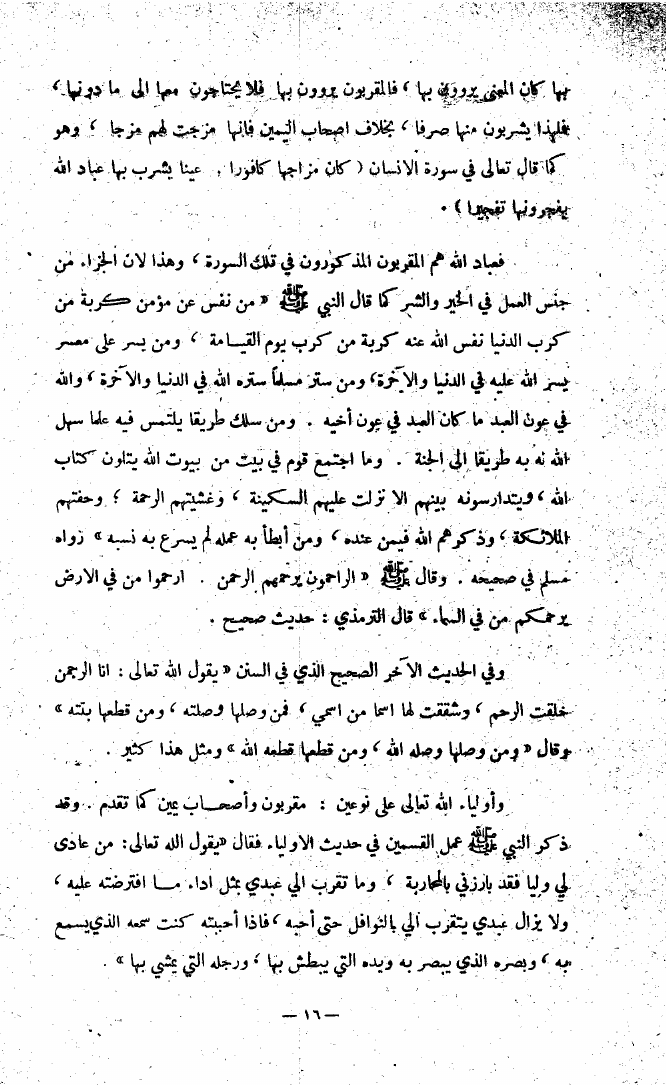 بها كان المعنى يروون بها ، فالمقربون يروون بها فلا يحتاجون معها الى ما دونها ،
فلهذا يشربون منها صرفا ، بخلاف اصحاب اليمين فانها مزجت لهم مزجا ، وهو
كما قال تعالى في سورة الانسان ( كان مزاجها كافورا . عينا يشرب بها عباد الله
يفجرونها تفجيرا ) .
فعباد الله هم المقربون المذكورون في تلك السورة ، وهذا لان الجزاء من
جنس العمل في الخير والشر كما قال النبي ﷺ « من نفس عن مؤمن كربة من
كرب الدنيا نفس الله عنه كربة من كرب يوم القيامة ، ومن يسر على معسر
يسر الله عليه في الدنيا والآخرة، ومن ستر مسلماً ستره الله في الدنيا والآخرة ، والله
في عون العبد ما كان العبد في عون أخيه . ومن سلك طريقا يلتمس فيه علما سهل
الله له به طريقا الى الجنة . وما اجتمع قوم في بيت من بيوت الله يتلون كتاب
الله ، ويتدارسونه بينهم الا نزلت عليهم السكينة ، وغشيتهم الرحمة ؛ وحفتهم
الملائكة ، وذكرهم الله فيمن عنده ، ومن أبطأ به عمله لم يسرع به نسبه » رواه
مسلم في صحيحه . وقال ﷺ « الراحمون يرحمهم الرحمن . ارحموا من في الارض
يرحمكم من في السماء » قال الترمذي : حديث صحيح .
وفي الحديث الآخر الصحيح الذي في السنن « يقول الله تعالى : انا الرحمن
خلقت الرحم ، وشققت لها اسما من اسمي ، فمن وصلها وصلته ، ومن قطعها بتته »
وقال « ومن وصلها وصله الله ، ومن قطعها قطعه الله » ومثل هذا كثير .
وأولياء الله تعالى على نوعين : مقربون وأصحاب يمين كما تقدم . وقد
ذكر النبي ﷺ عمل القسمين في حديث الاولياء فقال «يقول الله تعالى: من عادى
لي وليا فقد بارزني بالمحاربة ، وما تقرب الي عبدي بمثل اداء ما افترضته عليه ،
ولا يزال عبدي يتقرب الي بالنوافل حتى أحبه ، فاذا أحببته كنت سمعه الذي يسمع
به ، وبصره الذي يبصر به ويده التي يبطش بها ، ورجله التي يمشي بها » .
— ١٦ —